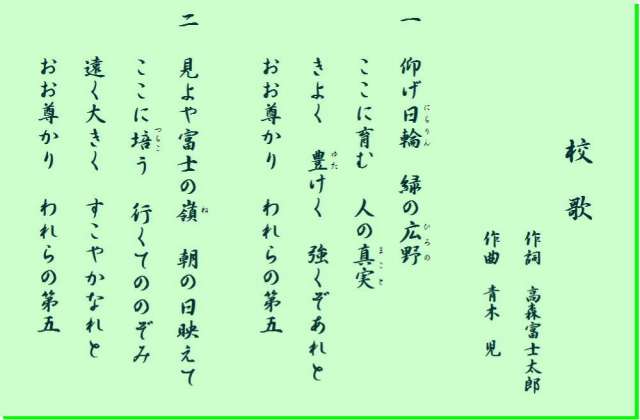 校歌
作詞 高森富士太郎
作曲 青木 児
一 仰げ日輪 緑の広野
ここに育む 人の真実
きよく 豊けく 強くぞあれと
おお尊かり われらの第五
二 見よや富士の嶺 朝の日映えて
ここに培う 行くてののぞみ
遠く大きく すこやかなれと
おお尊かり われらの第五